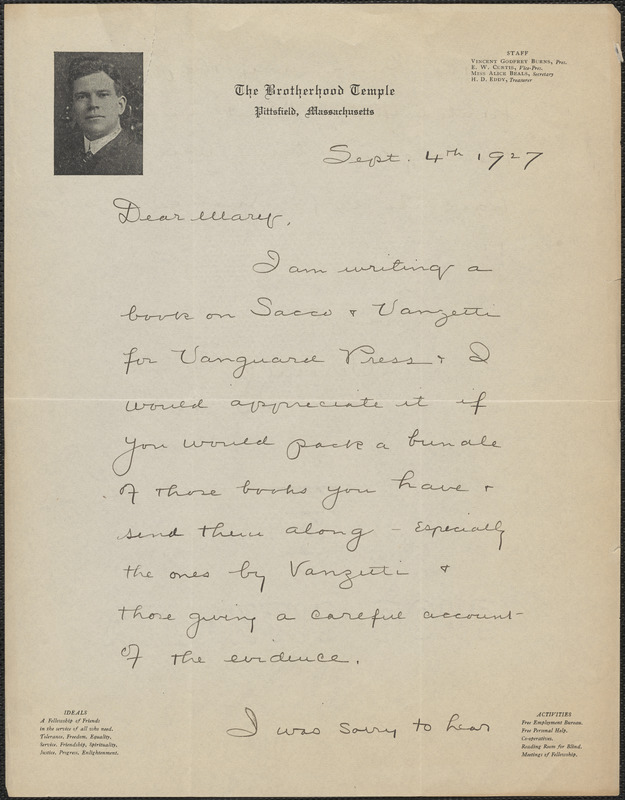 STAFF
VINCENT GODFREY BURNS, Pres.
E. W. CURTIS, Vice-Pres.
MISS ALICE BEALS, Secretary
H. D. EDDY, Treasurer
The Brotherhood Temple
Pittsfield, Massachusetts
Sept. 4th 1927
Dear Mary,
I am writing a
book on Sacco & Vanzetti
for Vanguard Press & I
would appreciate it if
you would pack a bundle
of those books you have &
send them along – Especially
the ones by Vanzetti &
those giving a careful account
of the evidence.
I was sorry to hear
IDEALS
A Fellowship of Friends
in the service of all who need.
Tolerance, Freedom, Equality,
Service, Friendship, Spirituality,
Justice, Progress, Enlightenment.
ACTIVITIES
Free Employment Bureau.
Free Personal Help.
Co-operatives.
Reading Room for Blind.
Meetings of Fellowship.